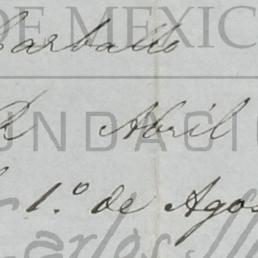 DE MEXICO
Carballo
R Abril
FUNDACI
1.º de Agos
Carlos